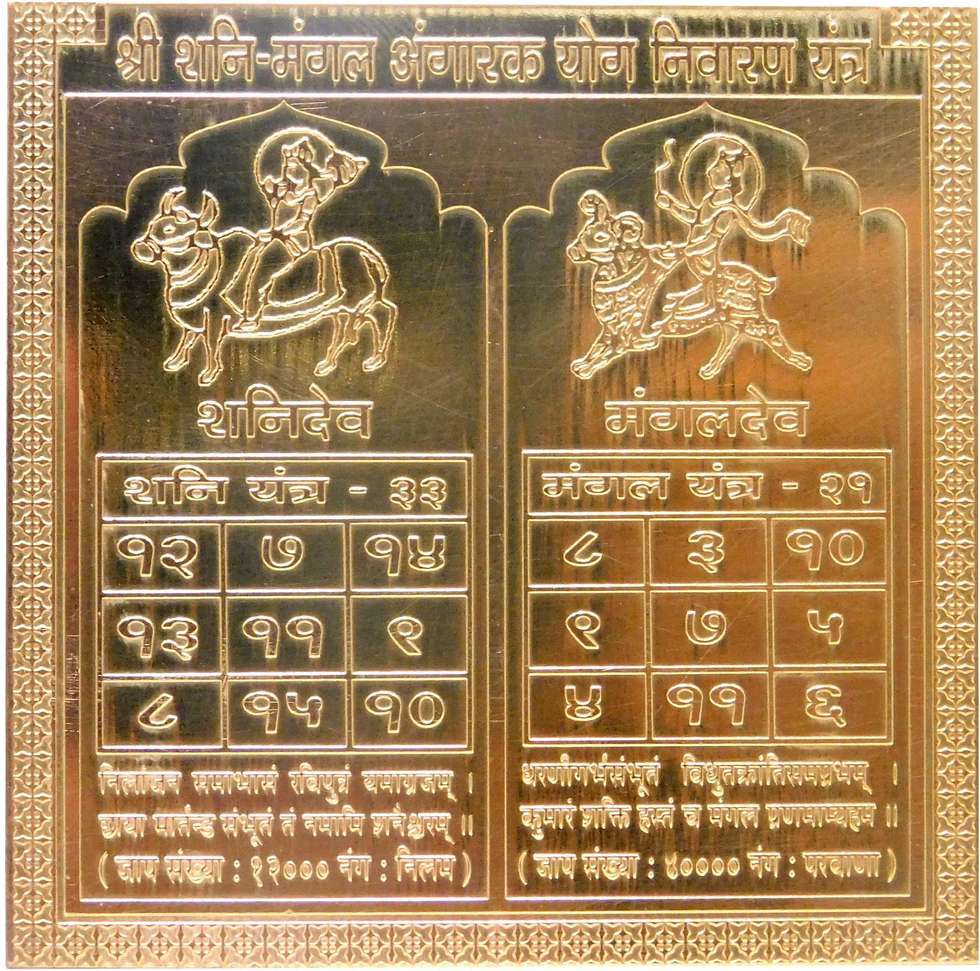 श्री शनि-मंगल अंगारक योग निवारण यंत्र
शनिदेव
शनि यंत्र - ३३
१२ ७ १४
१३ ११ ९
८ १५ १०
निलाजन समाभासं रविपुत्रं यमाग्रजम् ।
छाया मार्तन्ड संभूतं तं नमामि शनैश्वरम् ॥
( जाप संख्या : २३००० नंग : निलम )
मंगलदेव
मंगल यंत्र - २१
८ ३ १०
९ ७ ५
४ ११ ६
धरणीगर्भसंभूतं विधुतक्रांतिसमप्रभम् ।
कुमारं शक्ति हस्तं च मंगल प्रणमाम्यहम ॥
( जाप संख्या : ४०००० नंग : परवाणा )